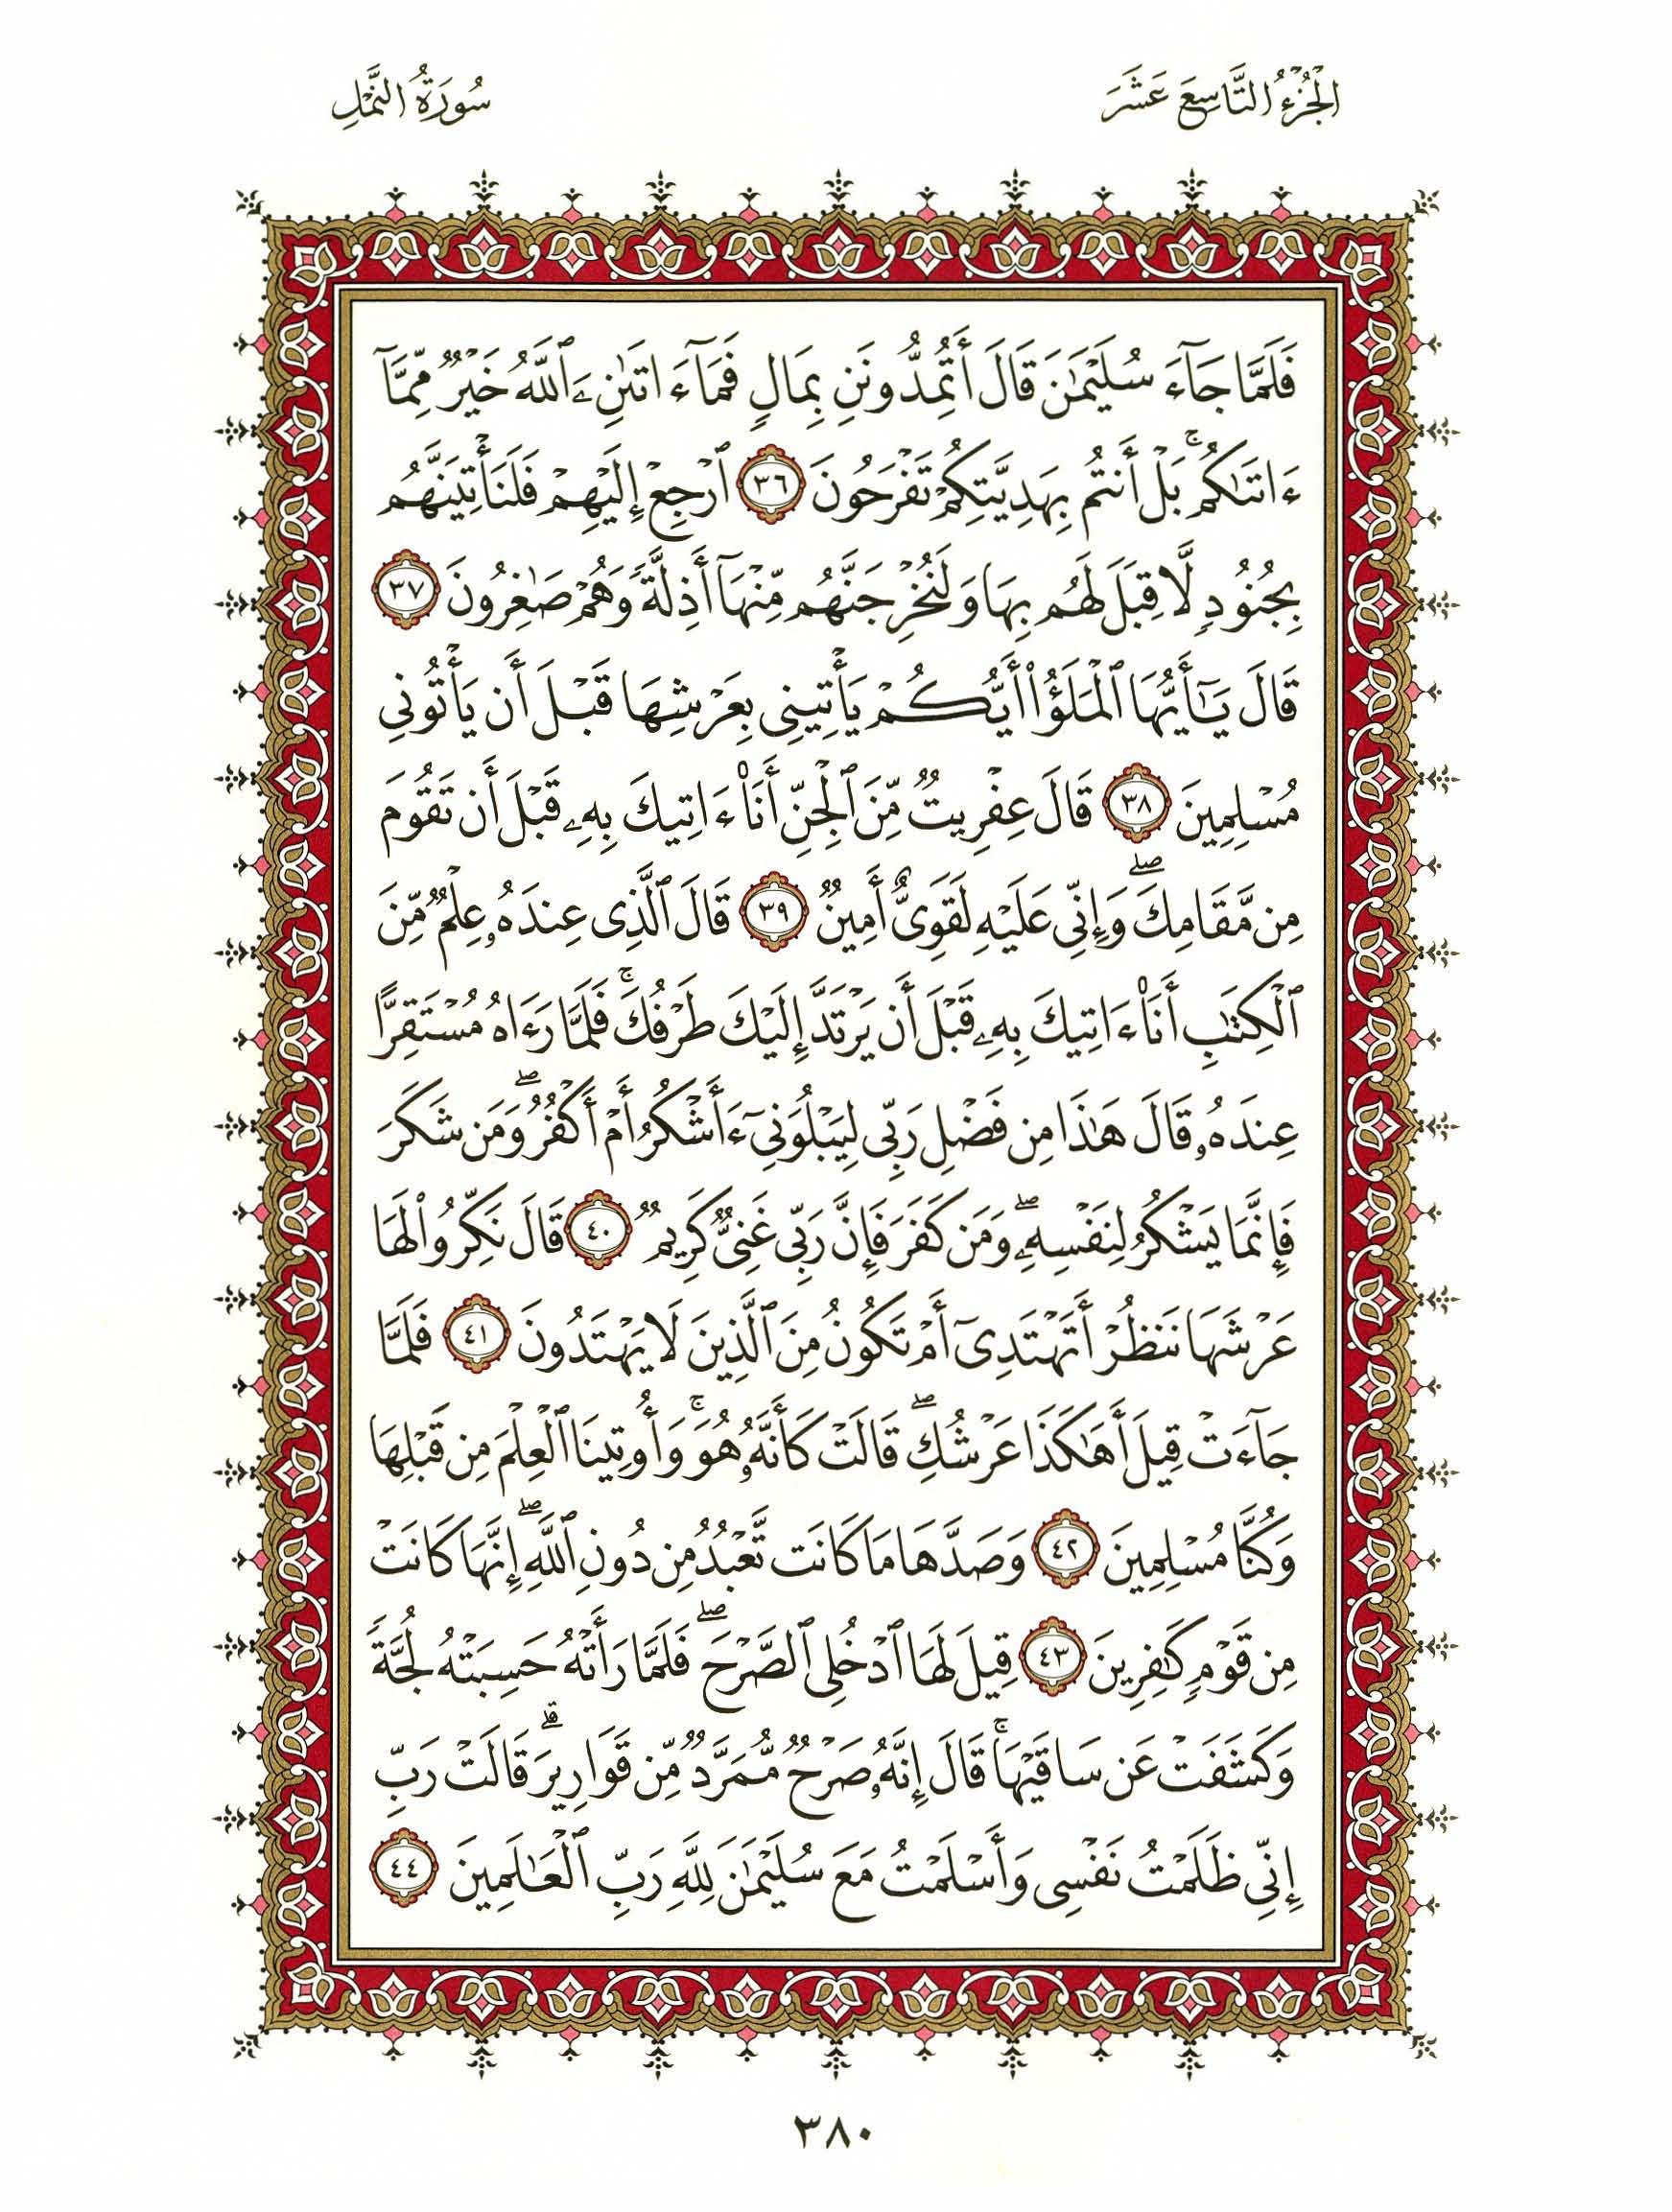 الجُزْءُ التَّاسِعَ عَشَرَ
سُورَةُ النَّمْلِ
فَلَمَّا جَآءَ سُلَيْمَٰنَ قَالَ أَتُمِدُّونَنِ بِمَالٍ فَمَآ ءَاتَىٰنِۦَ ٱللَّهُ خَيْرٌ مِّمَّآ
ءَاتَىٰكُم ۚ بَلْ أَنتُم بِهَدِيَّتِكُمْ تَفْرَحُونَ ٣٦ ٱرْجِعْ إِلَيْهِمْ فَلَنَأْتِيَنَّهُم
بِجُنُودٍ لَّا قِبَلَ لَهُم بِهَا وَلَنُخْرِجَنَّهُم مِّنْهَآ أَذِلَّةً وَهُمْ صَٰغِرُونَ ٣٧
قَالَ يَٰٓأَيُّهَا ٱلْمَلَؤُا۟ أَيُّكُمْ يَأْتِينِى بِعَرْشِهَا قَبْلَ أَن يَأْتُونِى
مُسْلِمِينَ ٣٨ قَالَ عِفْرِيتٌ مِّنَ ٱلْجِنِّ أَنَا۠ ءَاتِيكَ بِهِۦ قَبْلَ أَن تَقُومَ
مِن مَّقَامِكَ ۖ وَإِنِّى عَلَيْهِ لَقَوِىٌّ أَمِينٌ ٣٩ قَالَ ٱلَّذِى عِندَهُۥ عِلْمٌ مِّنَ
ٱلْكِتَٰبِ أَنَا۠ ءَاتِيكَ بِهِۦ قَبْلَ أَن يَرْتَدَّ إِلَيْكَ طَرْفُكَ ۚ فَلَمَّا رَءَاهُ مُسْتَقِرًّا
عِندَهُۥ قَالَ هَٰذَا مِن فَضْلِ رَبِّى لِيَبْلُوَنِىٓ ءَأَشْكُرُ أَمْ أَكْفُرُ ۖ وَمَن شَكَرَ
فَإِنَّمَا يَشْكُرُ لِنَفْسِهِۦ ۖ وَمَن كَفَرَ فَإِنَّ رَبِّى غَنِىٌّ كَرِيمٌ ٤٠ قَالَ نَكِّرُوا۟ لَهَا
عَرْشَهَا نَنظُرْ أَتَهْتَدِىٓ أَمْ تَكُونُ مِنَ ٱلَّذِينَ لَا يَهْتَدُونَ ٤١ فَلَمَّا
جَآءَتْ قِيلَ أَهَٰكَذَا عَرْشُكِ ۖ قَالَتْ كَأَنَّهُۥ هُوَ ۚ وَأُوتِينَا ٱلْعِلْمَ مِن قَبْلِهَا
وَكُنَّا مُسْلِمِينَ ٤٢ وَصَدَّهَا مَا كَانَت تَّعْبُدُ مِن دُونِ ٱللَّهِ ۖ إِنَّهَا كَانَتْ
مِن قَوْمٍ كَٰفِرِينَ ٤٣ قِيلَ لَهَا ٱدْخُلِى ٱلصَّرْحَ ۖ فَلَمَّا رَأَتْهُ حَسِبَتْهُ لُجَّةً
وَكَشَفَتْ عَن سَاقَيْهَا ۚ قَالَ إِنَّهُۥ صَرْحٌ مُّمَرَّدٌ مِّن قَوَارِيرَ ۗ قَالَتْ رَبِّ
إِنِّى ظَلَمْتُ نَفْسِى وَأَسْلَمْتُ مَعَ سُلَيْمَٰنَ لِلَّهِ رَبِّ ٱلْعَٰلَمِينَ ٤٤
٣٨٠